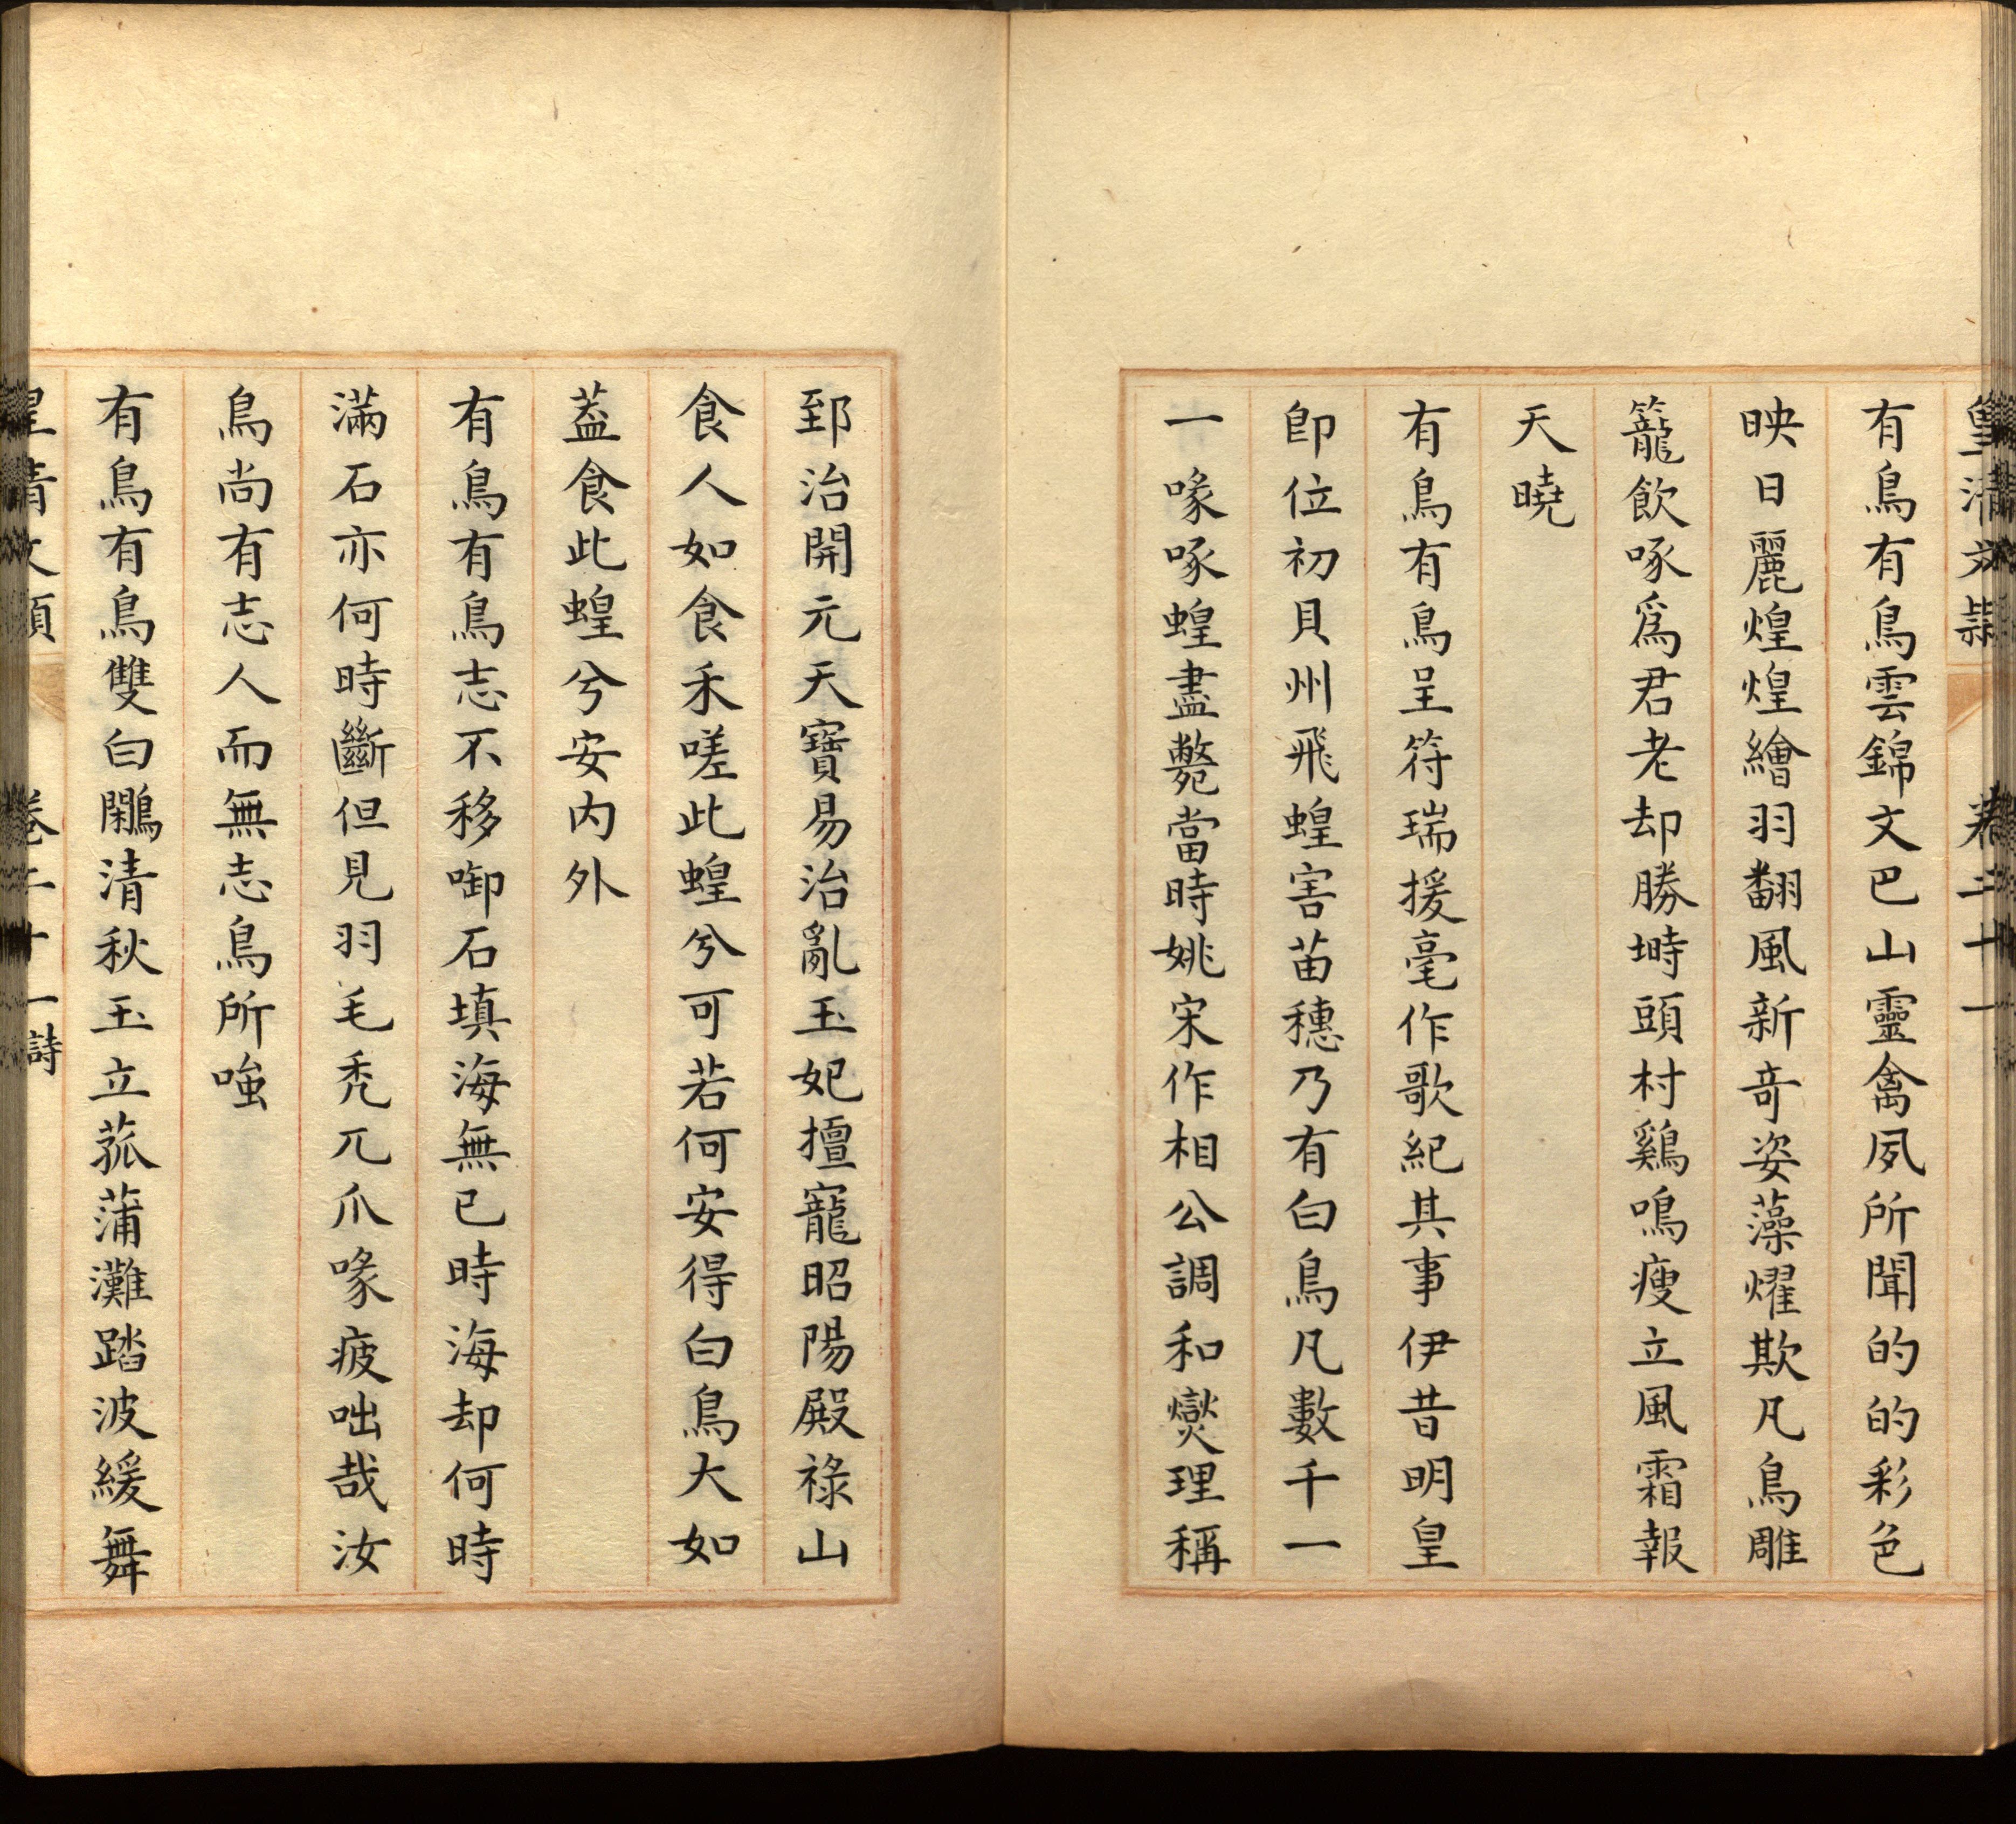 皇清文穎　卷二十一
有鳥有鳥雲錦文巴山靈禽夙所聞的的彩色
映日麗煌煌繪羽翻風新奇姿藻燿欺凡鳥雕
籠飲啄為君老却勝塒頭村鷄鳴瘦立風霜報
天曉
有鳥有鳥呈符瑞援毫作歌紀其事伊昔明皇
即位初貝州飛蝗害苗穗乃有白鳥凡數千一
一喙啄蝗盡斃當時姚宋作相公調和爕理稱
郅治開元天寶易治亂玉妃擅寵昭陽殿祿山
食人如食禾嗟此蝗兮可若何安得白鳥大如
葢食此蝗兮安内外
有鳥有鳥志不移啣石填海無已時海却何時
滿石亦何時斷但見羽毛秃兀爪喙疲咄哉汝
鳥尚有志人而無志鳥所嗤
有鳥有鳥雙白鷴清秋玉立菰蒲灘踏波緩舞
皇清文穎　卷二十一詩